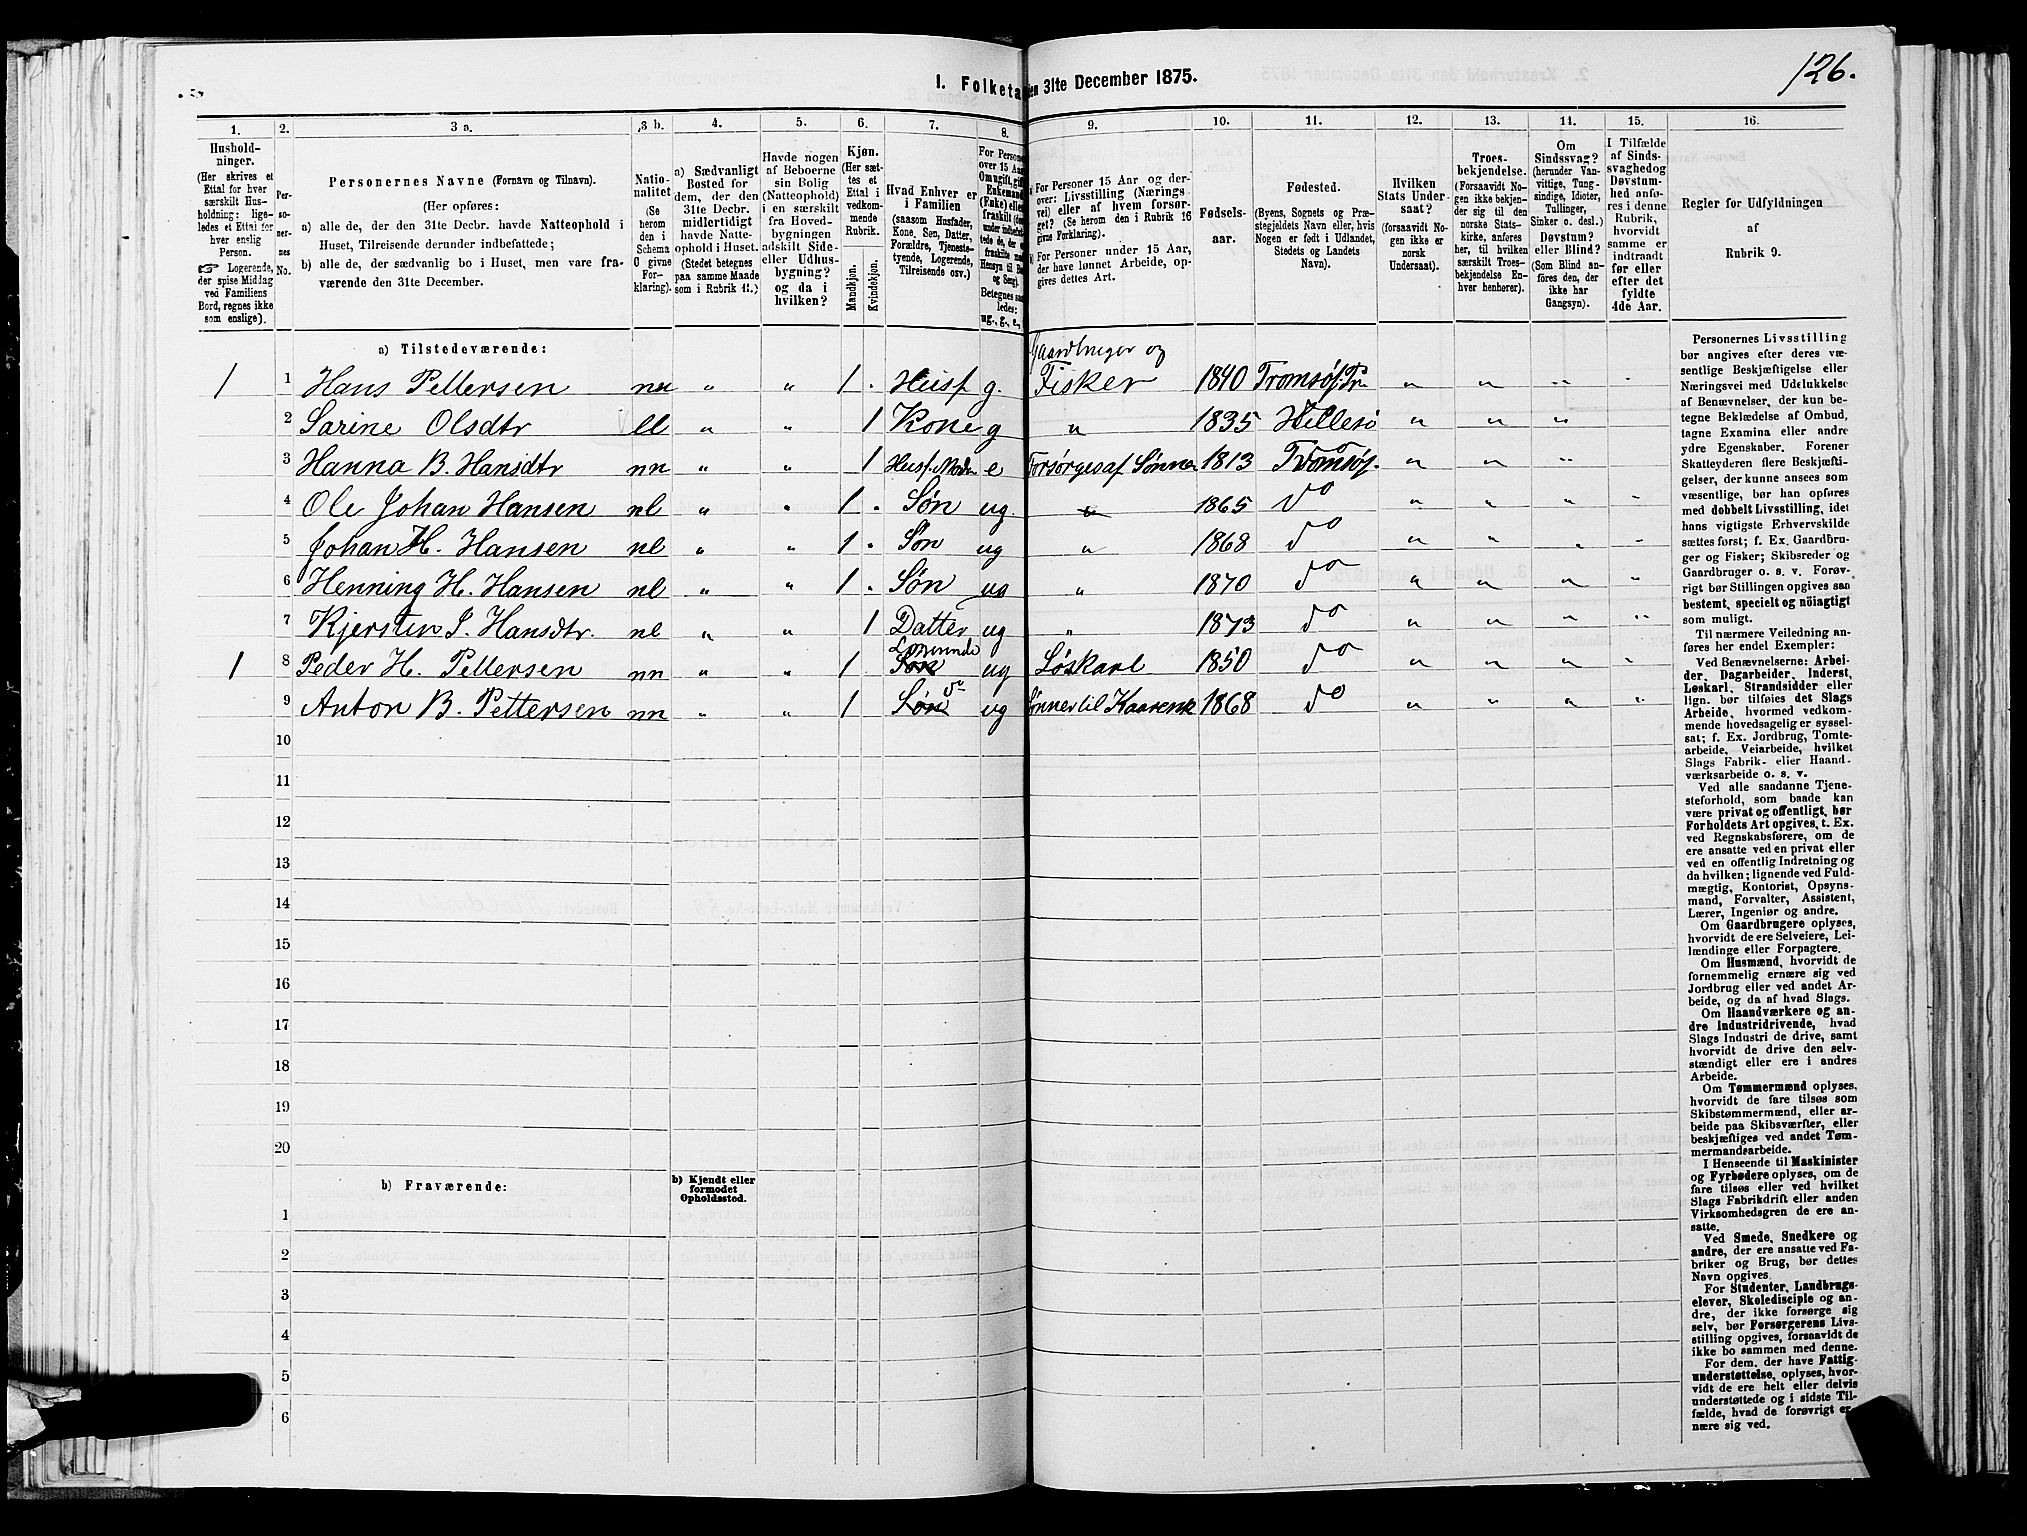 126.
I. Folketa en 31te December 1875.
1. 2. 3 a. 3 b. 4. 5. 6. 7. 8. 9. 10. 11. 12. 13. 14. 15. 16.
Hushold-
ninger.
(Her skrives et
Ettal for hver
særskilt Hus-
holdning; lige-
ledes et Ettal for
hver enslig
Person.
☞ Logerende,
der spise Middag
ved Familiens
Bord, regnes ikke
som enslige).
Per-
so-
ner-
nes
No.
Personernes Navne (Fornavn og Tilnavn).
(Her opføres:
a) alle de, der den 31te Decbr. havde Natteophold i
Huset, Tilreisende derunder indbefattede;
b) alle de, der sædvanlig bo i Huset, men vare fra-
værende den 31te December.
Natio-
nalitet
(Se
herom
den i
Schema
O givne
For-
klaring).
a) Sædvanligt
Bosted for
dem, der den
31te Decbr.
midlertidigt
havde Natte-
ophold i Huset.
(Stedet betegnes
paa samme Maade
som i Rubrik 11.)
Havde nogen
af Beboerne
sin Bolig
(Natteophold)
i en særskilt
fra Hoved-
bygningen
adskilt Side-
eller Udhus-
bygning?
og da i
hvilken?
Kjøn.
(Her sæt-
tes et
Ettal i
vedkom-
mende
Rubrik.
Mandkjøn.
Kvindekjøn.
Hvad Enhver er
i Familien
(saasom Husfader,
Kone, Søn, Datter,
Forældre, Tjeneste-
tyende, Logerende,
Tilreisende osv.)
For Persone
over 15 Aar
Om ugift, gift,
Enkemand
(Enke) eller
fraskilt
Betegnes saa-
ledes:
ug., g., e.,
a) For Personer 15 Aar og der-
over: Livsstilling (Nærings-
vei) eller af hvem forsør-
get? (Se herom den i Rubrik 16
givne Forklaring).
b) For Personer under 15 Aar,
der have lønnet Arbeide, op-
gives dettes Art.
Fødsels-
aar.
Fødested.
(Byens, Sognets og Præ-
stegjeldets Navn eller, hvis
Nogen er født i Udlandet,
Stedets og Landets
Navn).
Hvilken
Stats Under-
saat?
(forsaavidt No-
gen ikke er
norsk
Undersaat).
Troes-
bekjendelse.
(Forsaavidt No-
gen ikke bekjen-
der sig til den
norske Stats-
kirke, anføres
her, til hvilken
særskilt Troes-
bekjendelse En-
hver henhører).
Om
Sindssvag?
(herunder Van-
vittige, Tung-
sindige, Idioter,
Tullinger,
Sinker o. desl.)
Døvstum?
eller Blind?
(Som Blind an-
føres den, der
ikke har
Gangsyn).
I Tilfælde
af Sinds-
svaghed og
Døvstum-
hed anfø-
res i denne
Rubrik,
hvorvidt
samme er
indtraadt
før eller
efter det
fyldte
4de Aar.
Regler for Udfyldningen
af
Rubrik 9.
a) Tilstedeværende:
Gaardbruger og
1 1 Hans Pettersen nn " " 1 . Husf g. Fisker 1840 Tromsøf. Tr. " " " "
2 Sarine Olsdtr ll " " 1 Kone g " 1835 Hillesø " " "
3 Hanna B. Hansdtr nn " " 1 Husf. Moder e Forsørges af Sønnen 1813 Tromsøf. " " "
4 Ole Johan Hansen nl " " 1 . Søn ug. " 1865 do " " " "
5 Johan H. Hansen nl " " 1 . Søn ug " 1868 do " " " "
6 Henning H. Hansen nl " " 1 . Søn ug " 1870 do " " " "
7 Kjersten S. Hansdtr. nl " " 1 Datter ug " 1873 do " " " "
Logerende
1 8 Peder H. Pettersen nn " " 1 Søn ug Løskarl 1850 do " " " "
9 Anton B. Pettersen nn " " 1 Søn do ug Sønner til Kaarenk 1868 do " " " "
10
11
12
13
14
15
16
17
18
19
20
b) Fraværende:
b) Kjendt eller
formodet
Opholdssted.
1
2
3
4
5
6
Personernes Livsstilling
bør angives efter deres væ-
sentlige Beskjæftigelse eller
Næringsvei med Udelukkelse
af Benævnelser, der kun be-
tegne Beklædelse af Ombud,
tagne Examina eller andre
ydre Egenskaber. Forener
Skatteyderen flere Beskjæfti-
gelser, der kunne ansees som
væsentlige, bør han opføres
med dobbelt Livsstilling, idet
hans vigtigste Erhvervskilde
sættes først; f. Ex. Gaardbru-
ger og Fisker; Skibsreder og
Gaardbruger o. s. v. Forøv-
rigt bør Stillingen opgives saa
bestemt, specielt og nöiagtigt
som muligt.
Til nærmere Veiledning an-
føres her endel Exempler:
Ved Benævnelserne: Arbei-
der, Dagarbeider, Inderst,
Løskarl, Strandsidder eller
lign. bør tilføies det Slags
Arbeide, hvormed vedkom-
mende hovedsagelig er syssel-
sat; f. Ex. Jordbrug, Tomte-
arbeide, Veiarbeide, hvilket
Slags Fabrik- eller Haand-
værksarbeide o. s. v.
Ved alle saadanne Tjene-
steforhold, som baade kan
være privat og offentligt, bør
Forholdets Art opgives, t. Ex.
ved Regnskabsførere, om de
ere ansatte ved en privat eller
ved en offentlig Indretning og
da hvilken; lignende ved Fuld-
mægtig, Kontorist, Opsyns-
mand, Forvalter, Assistent,
Lærer, Ingeniør og andre.
Om Gaardbrugere oplyses,
hvorvidt de ere Selveiere, Lei-
lændinge eller Forpagtere.
Om Husmænd, hvorvidt de
fornemmelig ernære sig ved
Jordbrug eller ved andet Ar-
beide, og da af hvad Slags.
Om Haandværkere og an-
dre Industridrivende, hvad
Slags Industri de drive, samt
hvorvidt de drive den selv-
stændigt eller ere i andres
Arbeide.
Om Tømmermænd oplyses,
hvorvidt de fare tilsøs som
Skibstømmermænd, eller ar-
beide paa Skibsværfter, eller
beskjæftiges ved andet Tøm-
mermandsarbeide.
I Henseende til Maskinister
og Fyrbødere oplyses, om de
fare tilsøs eller ved hvilket
Slags Fabrikdrift eller anden
Virksomhedsgren de ere an-
satte.
Ved Smede, Snedkere og
andre, der ere ansatte ved Fa-
briker og Brug, bør dettes
Navn opgives.
For Studenter, Landbrugs-
elever, Skoledisciple og an-
dre, der ikke forsørge sig
selv, bør Forsørgerens Livs-
stilling opgives, forsaavidt de
ikke bo sammen med denne.
For dem, der have Fattig-
understøttelse, oplyses, hvor-
vidt de ere helt eller delvis
understøttede og i sidste Til-
fælde, hvad de forøvrigt er-
nære sig ved.